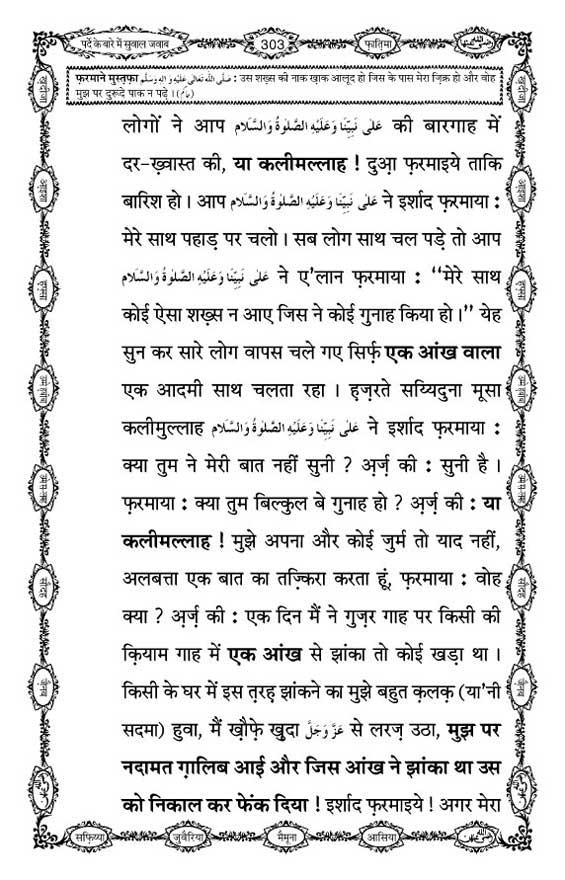 पर्दे के बारे में सुवाल जवाब
303
फ़ातिमा
फ़रमाने मुस्तफ़ा صَلَّى اللهُ تَعَالٰى عَلَيْهِ وَاٰلِهٖ وَسَلَّم : उस शख़्स की नाक ख़ाक आलूद हो जिस के पास मेरा ज़िक्र हो और वोह
मुझ पर दुरूदे पाक न पढ़े । (حاکم)
लोगों ने आप عَلٰى نَبِيِّنَا وَعَلَيْهِ الصَّلٰوةُ وَالسَّلَام की बारगाह में
दर-ख़्वास्त की, या कलीमल्लाह ! दुआ़ फ़रमाइये ताकि
बारिश हो । आप عَلٰى نَبِيِّنَا وَعَلَيْهِ الصَّلٰوةُ وَالسَّلَام ने इर्शाद फ़रमाया :
मेरे साथ पहाड़ पर चलो । सब लोग साथ चल पड़े तो आप
عَلٰى نَبِيِّنَا وَعَلَيْهِ الصَّلٰوةُ وَالسَّلَام ने ए'लान फ़रमाया : “मेरे साथ
कोई ऐसा शख़्स न आए जिस ने कोई गुनाह किया हो ।” येह
सुन कर सारे लोग वापस चले गए सिर्फ़ एक आंख वाला
एक आदमी साथ चलता रहा । ह़ज़रते सय्यिदुना मूसा
कलीमुल्लाह عَلٰى نَبِيِّنَا وَعَلَيْهِ الصَّلٰوةُ وَالسَّلَام ने इर्शाद फ़रमाया :
क्या तुम ने मेरी बात नहीं सुनी ? अ़र्ज़ की : सुनी है ।
फ़रमाया : क्या तुम बिल्कुल बे गुनाह हो ? अ़र्ज़ की : या
कलीमल्लाह ! मुझे अपना और कोई जुर्म तो याद नहीं,
अलबत्ता एक बात का तज़्किरा करता हूं, फ़रमाया : वोह
क्या ? अ़र्ज़ की : एक दिन मैं ने गुज़र गाह पर किसी की
क़ियाम गाह में एक आंख से झांका तो कोई खड़ा था ।
किसी के घर में इस त़रह़ झांकने का मुझे बहुत क़लक़ (या'नी
सदमा) हुवा, मैं ख़ौफ़े खुदा عَزَّ وَجَلَّ से लरज़ उठा, मुझ पर
नदामत ग़ालिब आई और जिस आंख ने झांका था उस
को निकाल कर फेंक दिया ! इर्शाद फ़रमाइये ! अगर मेरा
सफ़िय्या
जुवैरिया
मैमूना
आसिया